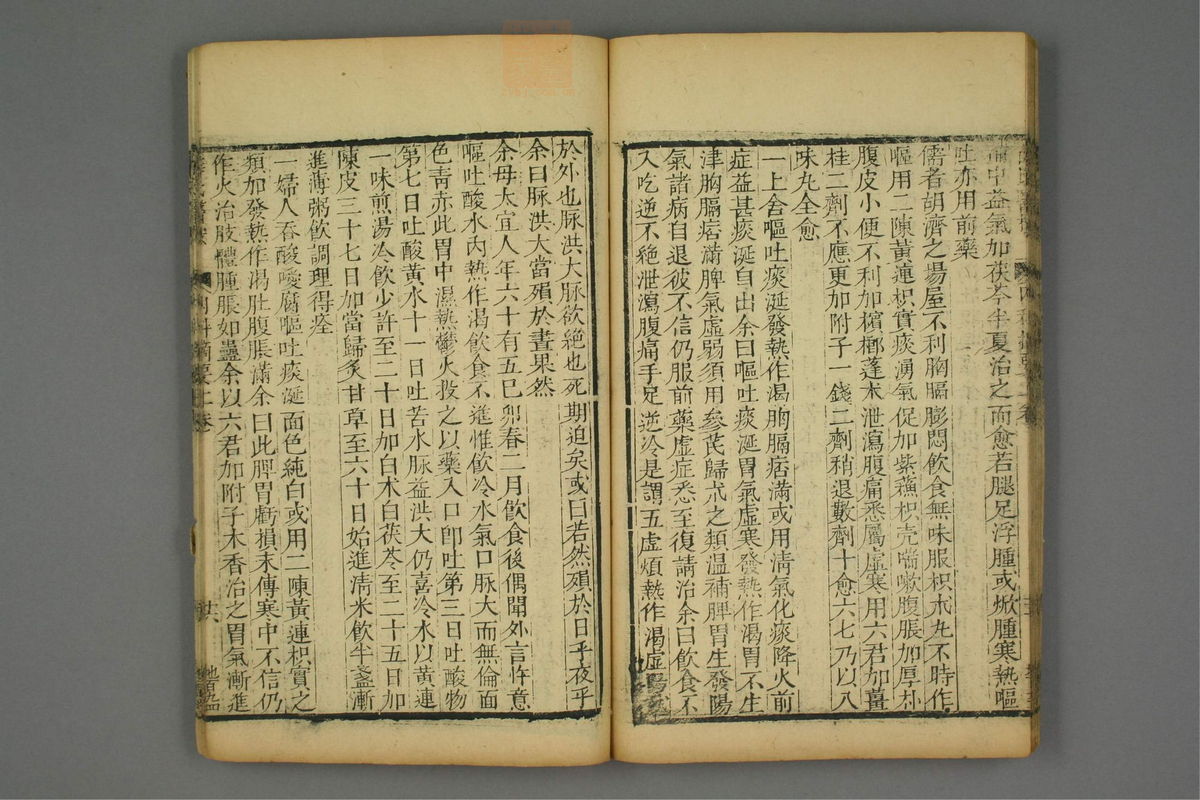 補中益氣加茯苓半夏治之而愈若腿足浮腫或焮腫寒熱嘔
吐亦用前藥
儒者胡濟之場屋不利胸膈膨悶飲食無味服枳朮丸不時作
嘔用二陳黃連枳實痰湧氣促加紫蘓枳壳喘嗽腹脹加厚朴
腹皮小便不利加檳榔蓬朮泄瀉腹痛悉屬虛寒用六君加薑
桂二劑不應更加附子一錢二劑稍退數劑十愈六七乃以八
味丸全愈
一上舍嘔吐痰涎發熱作渴胸膈痞滿或用淸氣化痰降火前
症益甚痰涎自出余曰嘔吐痰涎胃氣虛寒發熱作渴胃不生
津胸膈痞滿脾氣虛弱須用參芪歸朮之類温補脾胃生發陽
氣諸病自退彼不信仍服前藥虛症悉至復請治余曰飲食不
入吃逆不絕泄瀉腹痛手足逆冷是謂五虛煩熱作渴虛陽
於外也脉洪大脉欲絕也死期迫矣或曰若然殞於日乎夜乎
余曰脉洪大當殞於晝果然
余母太宜人年六十有五巳夘春二月飲食後偶聞外言忤意
嘔吐酸水内熱作渴飲食不進惟飲冷水氣口脉大而無倫面
色靑赤此胃中濕熱鬱火投之以藥入口卽吐第三日吐酸物
第七日吐酸黃水十一日吐苦水脉益洪大仍喜冷水以黃連
一味煎湯冷飲少許至二十日加白朮白茯苓至二十五日加
陳皮三十七日加當歸炙甘草至六十日始進淸米飲半盞漸
進薄粥飲調理得痊
一婦人吞酸噯腐嘔吐痰涎面色純白或用二陳黃連枳實之
類加發熱作渴肚腹脹滿余曰此脾胃虧損末傳寒中不信仍
作火治肢體腫脹如蠱余以六君加附子木香治之胃氣漸進
内科摘要上卷
廿六